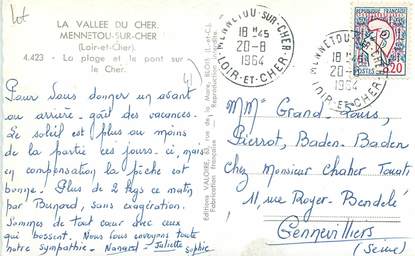 LA VALLEE DU CHER
MENNETOU-SUR-CHER
(Loir-et-Cher)
4.423 - La plage et le pont sur
le Cher.
Pour vous donner un avant
ou arrière-goût des vacances.
Le soleil est plus ou moins
de la partie ces jours-ci, mais
en compensation la pêche est
bonne. Plus de 2 kgs ce matin
par Bunard, sans exagération.
Sommes de tout cœur avec ceux
qui bossent. Nous vous envoyons toute
notre sympathie. Nanard - Juliette Sophie
Editions VALOIRE, rue du Maire, BLOIS (L.-et-C.)
Fabrication Française
Reproduction
MENNETOU-SUR-CHER
18H45
20-8
1964
LOIR-ET-CHER
MENNETOU-SUR-CHER
18H45
20-8
1964
LOIR-ET-CHER
REPUBLIQUE FRANÇAISE
0,20
POSTES
Mme Grand-Louis,
Pierrot, Baden-Baden
Chez Monsieur Chaker Touati
11, rue Royer-Bendelé
Gennevilliers
(Seine)